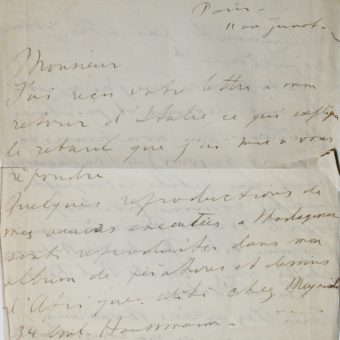 Paris
11 rue
Monsieur
J'ai reçu votre lettre à mon
retour d'Italie ce qui explique
le retard que j'ai mis à vous
répondre
Quelques reproductions de
mes œuvres executées à Madagascar
sont reproduites dans mon
album de peintures et dessins
d'Afrique édité chez Meynial
34 Bd. Haussmann